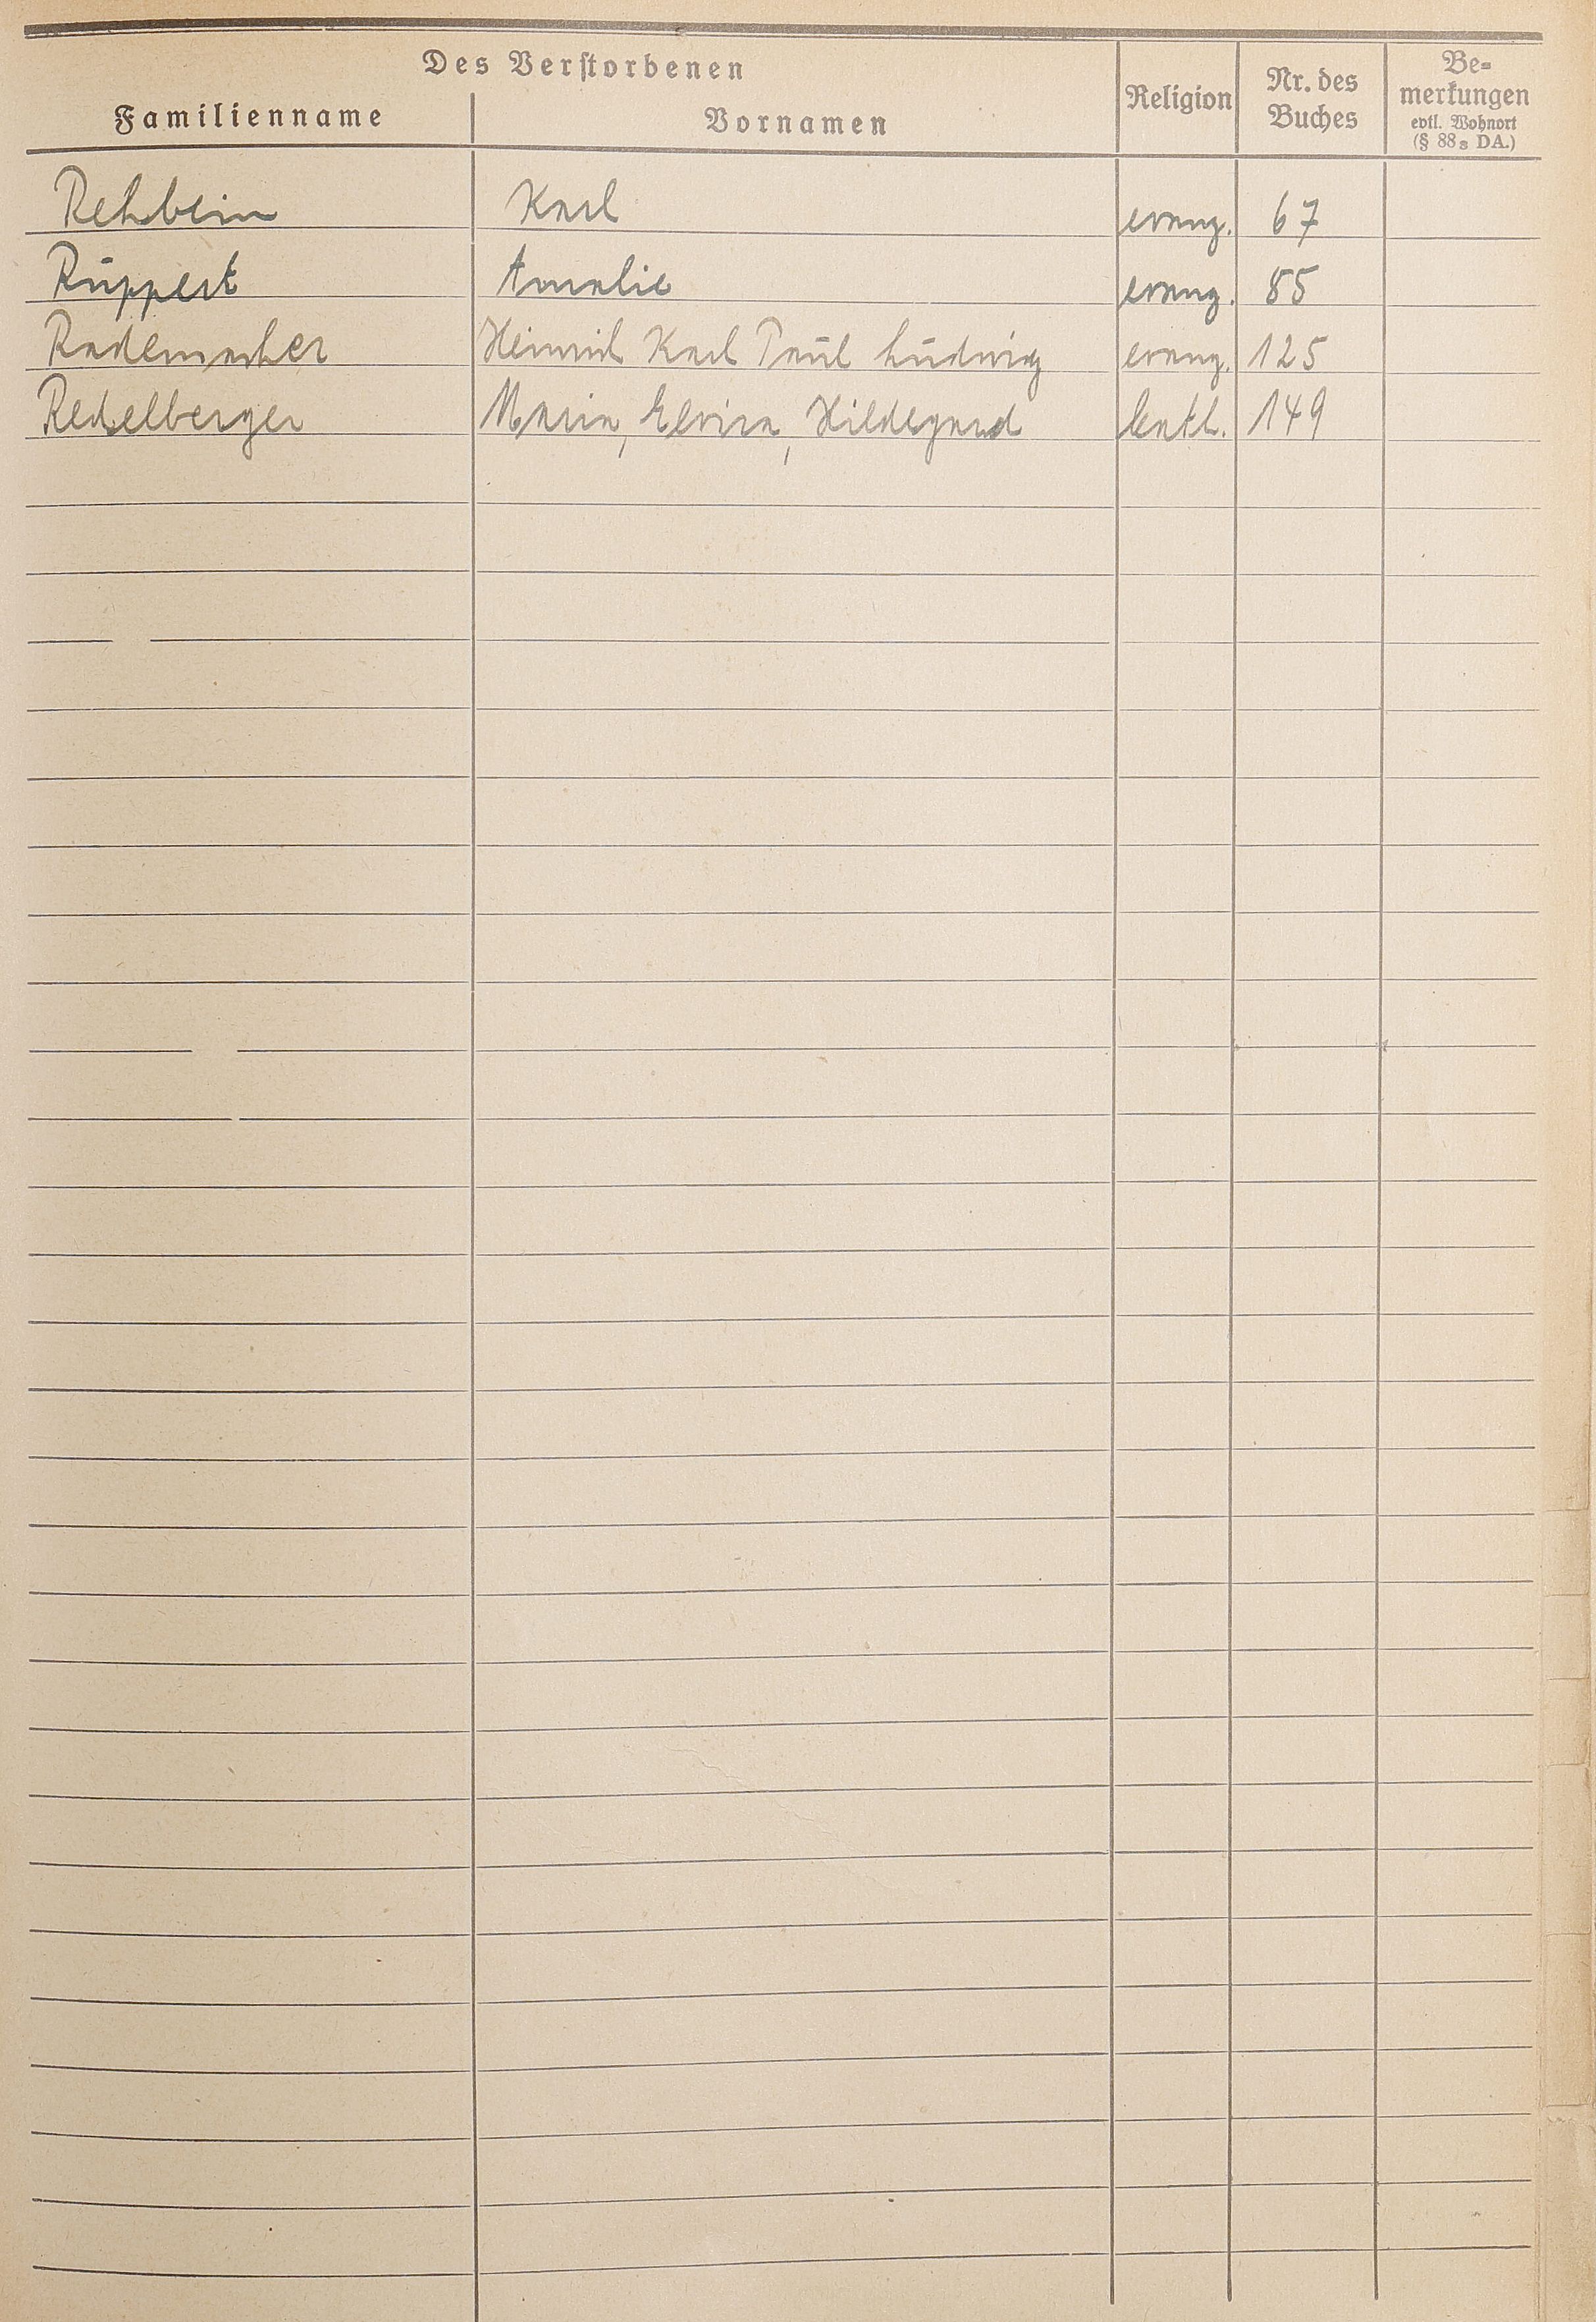 Des Verstorbenen
Familienname Vornamen Religion Nr. des Buches Be-
merkungen
evtl. Wohnort
(§ 88 s DA.)
Rehbein Karl evang. 67
Ruppert Amalie evang. 85
Rademacher Heinrich Karl Paul Ludwig evang. 125
Redelberger Maria, Elvira, Hildegard kath. 149